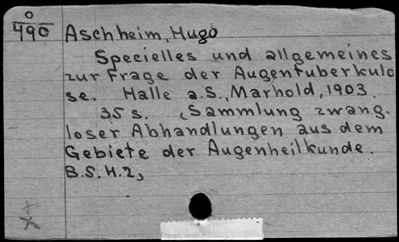 O
490
Aschheim, Hugo
Specielles und allgemeines
zur Frage der Augentuberkulo
se. Halle a.S., Marhold, 1903.
35 s. (Sammlung zwang-
loser Abhandlungen aus dem
Gebiete der Augenheilkunde.
B.5. H.2,)